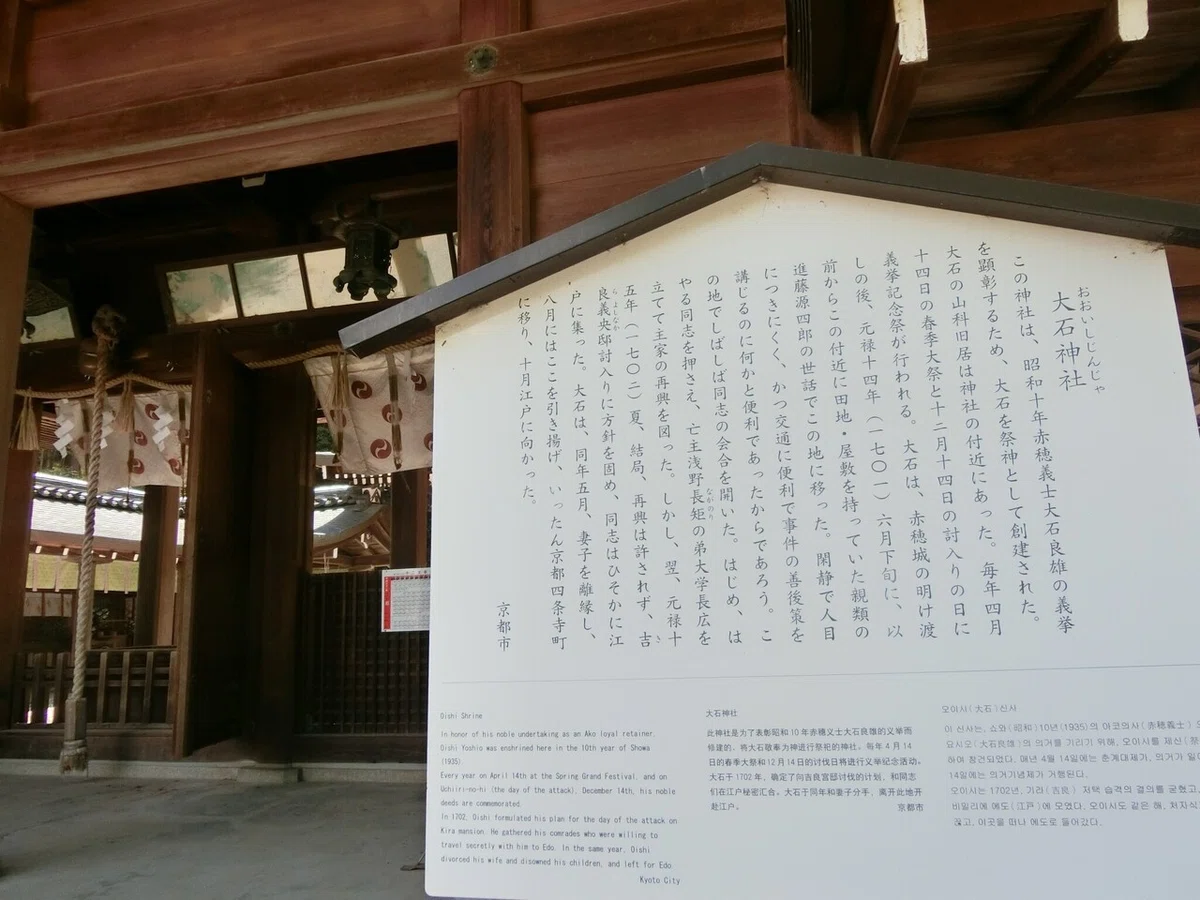 おおいしじんじゃ
大石神社
この神社は、昭和十年赤穂義士大石良雄の義挙
を顕彰するため、大石を祭神として創建された。
大石の山科旧居は神社の付近にあった。毎年四月
十四日の春季大祭と十二月十四日の討入りの日に
義挙記念祭が行われる。大石は、赤穂城の明け渡
しの後、元禄十四年（一七〇一）六月下旬に、以
前からこの付近に田地・屋敷を持っていた親類の
進藤源四郎の世話でこの地に移った。閑静で人目
につきにくく、かつ交通に便利で事件の善後策を
講じるのに何かと便利であったからであろう。こ
の地でしばしば同志の会合を開いた。はじめ、は
やる同志を押さえ、亡主浅野長矩の弟大学長広を
立てて主家の再興を図った。しかし、翌、元禄十
五年（一七〇二）夏、結局、再興は許されず、吉
良義央邸討入りに方針を固め、同志はひそかに江
戸に集った。大石は、同年五月、妻子を離縁し、
八月にはここを引き揚げ、いったん京都四条寺町
に移り、十月江戸に向かった。
京都市
Oishi Shrine
In honor of his noble undertaking as an Ako loyal retainer,
Oishi Yoshio was enshrined here in the 10th year of Showa
(1935)
Every year on April 14th at the Spring Grand Festival, and on
Uchiiri-no-hi (the day of the attack), December 14th, his noble
deeds are commemorated.
In 1702, Oishi formulated his plan for the day of the attack on
Kira mansion. He gathered his comrades who were willing to
travel secretly with him to Edo. In the same year, Oishi
divorced his wife and disowned his children, and left for Edo
Kyoto City
大石神社
此神社是为了表彰昭和10年赤穗义士大石良雄的义举而
修建的，将大石敬奉为神进行祭祀的神社。每年4月14
日的春季大祭和12月14日的讨伐日将进行义举纪念活动。
大石于1702年，确定了向吉良宫邸讨伐的计划，和同志
们在江户秘密汇合。大石于同年和妻子分手，离开此地开
赴江户。
京都市
오이시(大石)신사
이 신사는, 쇼와(昭和)10년(1935)의 아코의사(赤穂義士)
요시오(大石良雄)의 의거를 기리기 위해, 오이시를 제신(
하여 창건되었다. 매년 4월 14일에는 춘계대제가, 의거가
14일에는 의거기념제가 거행된다.
오이시는 1702년, 기라(吉良) 저택 습격의 결의를 굳혔고,
비밀리에 에도(江戸)에 모였다. 오이시도 같은 해, 처자식
끊고, 이곳을 떠나 에도로 들어갔다.